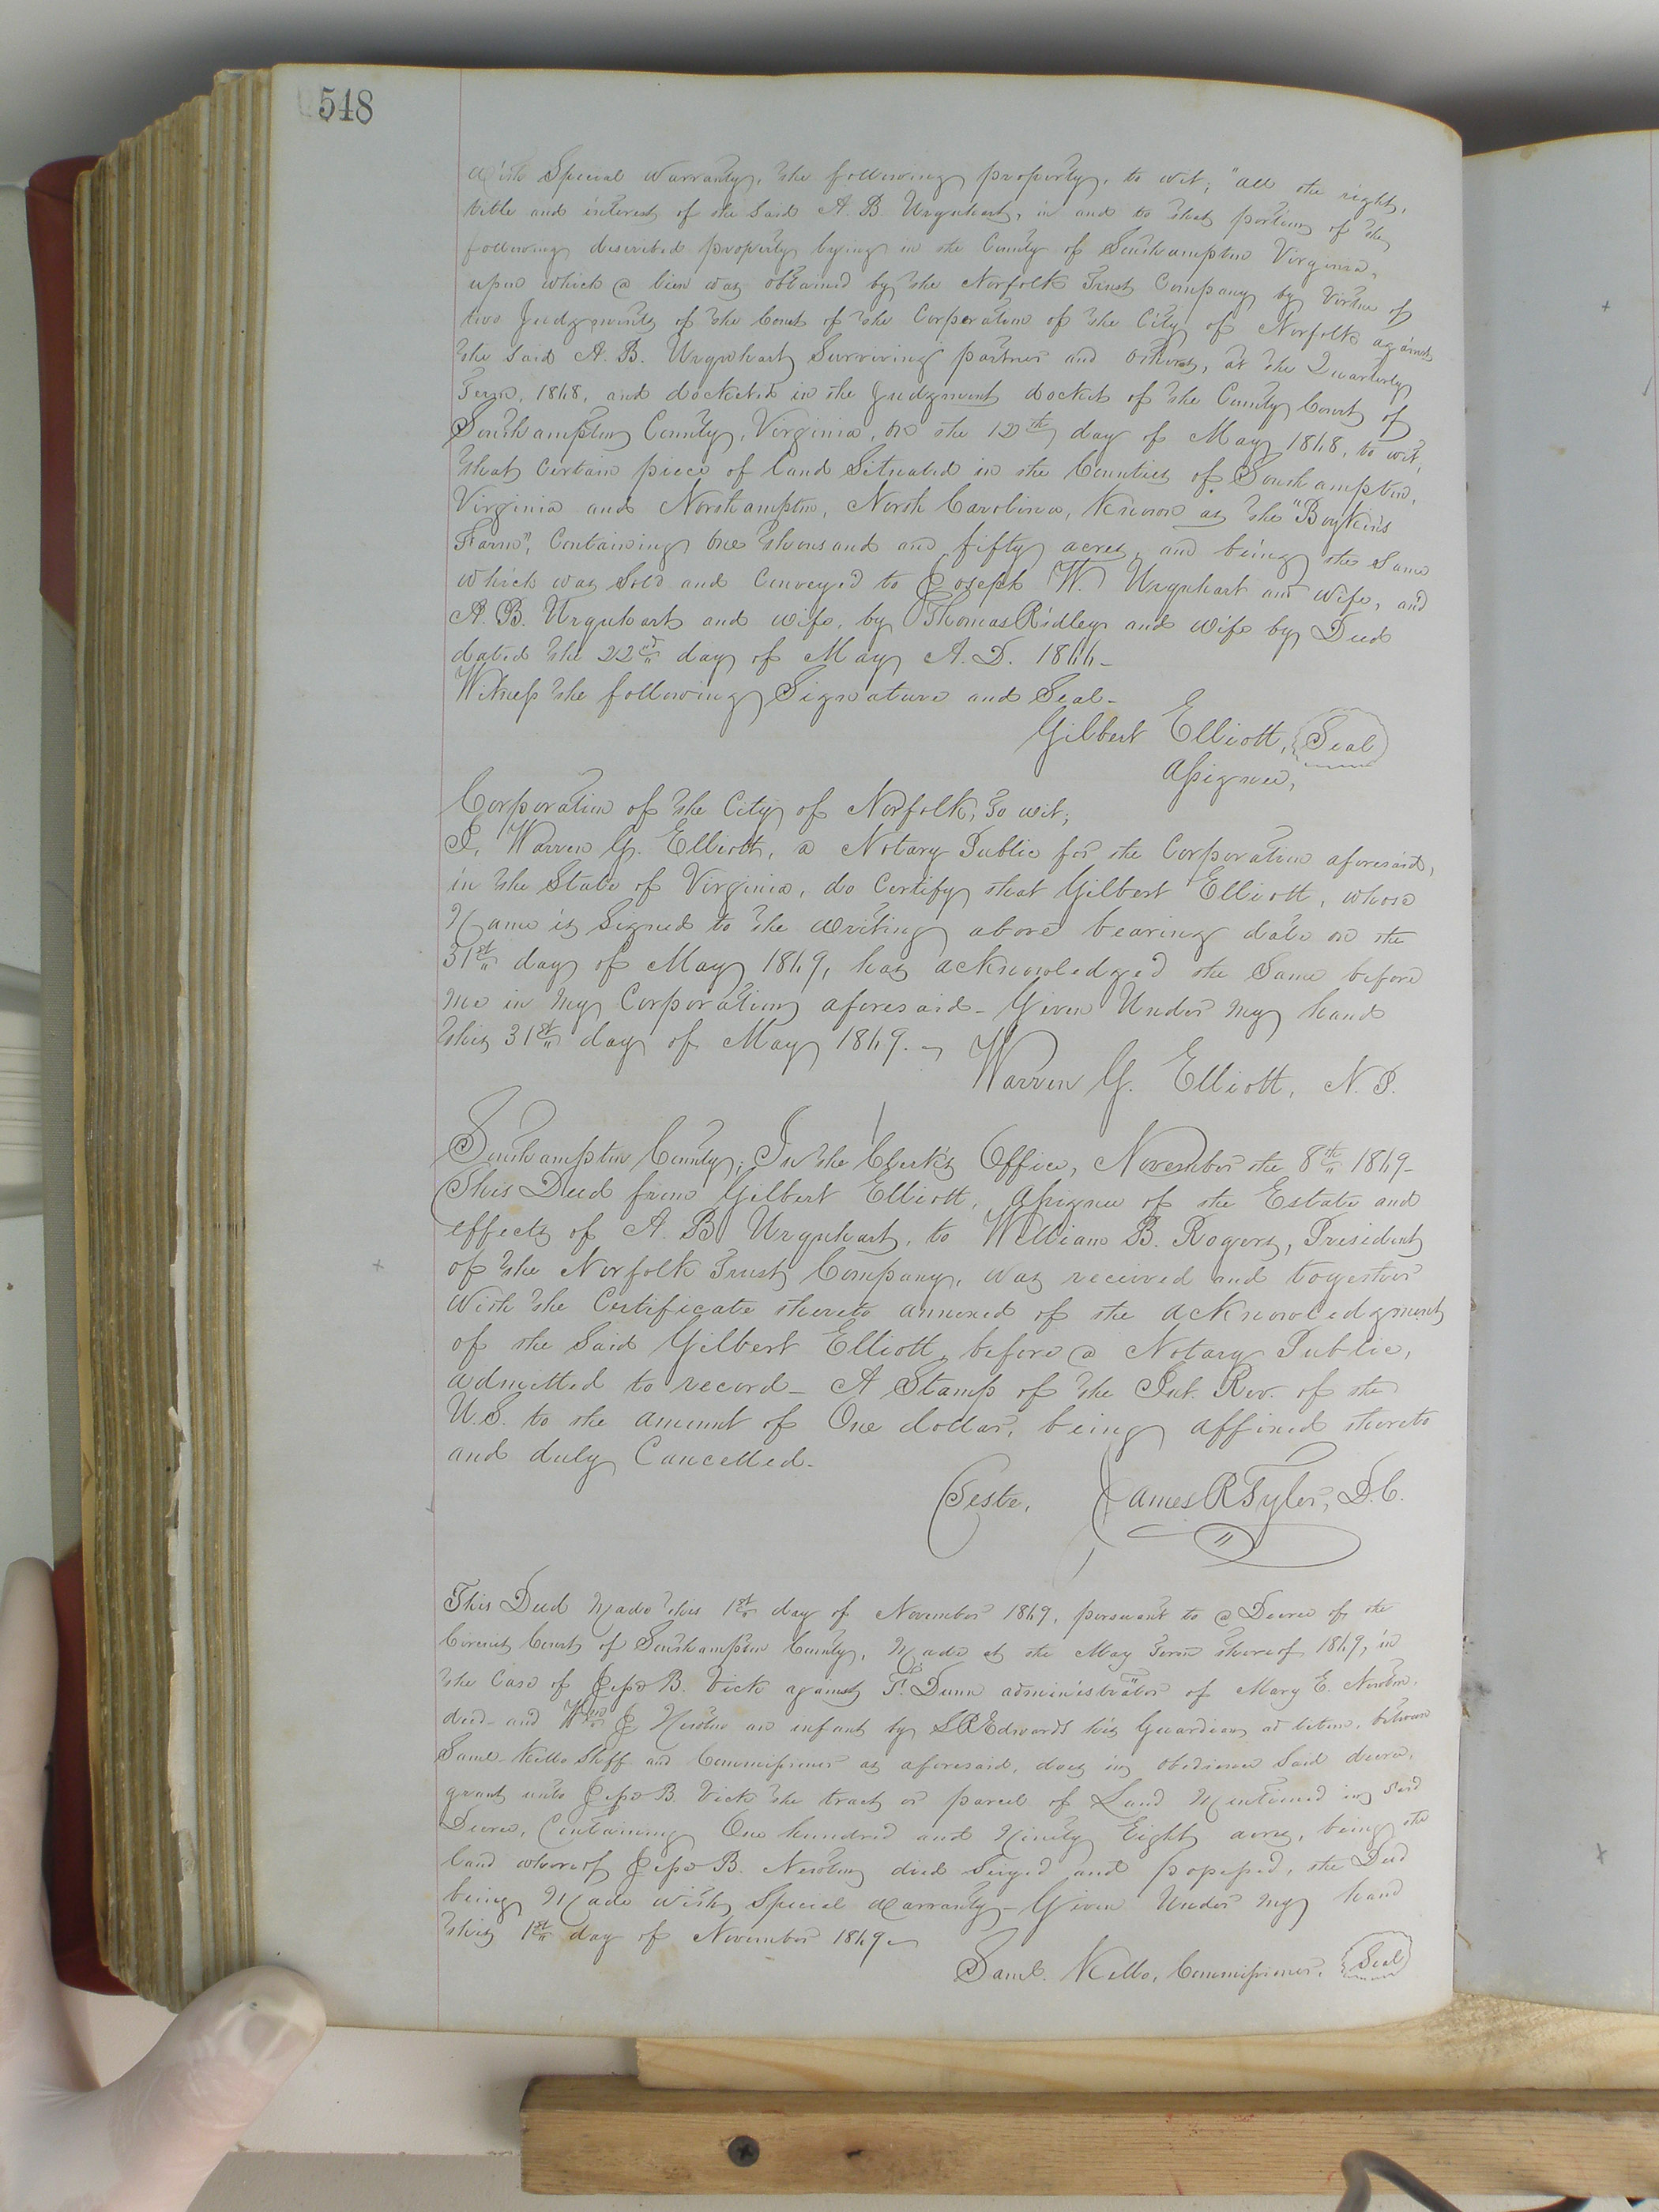 548
With Special Warranty, the following property, to wit; "all the right,
title and interest of the said A. B. Urquhart, in and to that portion of the
following described property lying in the County of Southampton Virginia,
upon which a lien was obtained by the Norfolk Trust Company by Virtue of
two Judgments of the Court of the Corporation of the City of Norfolk against
the said A. B. Urquhart Surviving partner and others, at the Quarterly
Term, 1868, and docketed in the Judgment docket of the County Court of
Southampton County, Virginia, on the 12th day of May 1868, to wit,
that Certain piece of land Situated in the Counties of Southampton,
Virginia and Northampton, North Carolina, Known as the "Boykins
Farm", Containing One thousand and fifty acres, and being the Same
which was Sold and Conveyed to Joseph W. Urquhart and wife, and
A. B. Urquhart and wife, by Thomas Ridley and wife by Deed
dated the 22nd day of May A. D. 1866-
Witness the following Signature and Seal-
Gilbert Elliott, Seal
Assignee,
Corporation of the City of Norfolk, To wit;
I, Warren G. Elliott, a Notary Public for the Corporation aforesaid,
in the State of Virginia, do Certify that Gilbert Elliott, whose
Name is Signed to the writing above bearing date on the
31st day of May 1869, has acknowledged the Same before
me in my Corporation aforesaid- Given Under my hand
this 31st day of May 1869.-
Warren G. Elliott, N. P.
Southampton County; In the Clerk's Office, November the 8th 1869-
This Deed from Gilbert Elliott, Assignee of the Estate and
effects of A. B. Urquhart, to William B. Rogers, President
of the Norfolk Trust Company, was received and together
With the Certificate thereto annexed of the acknowledgment
of the Said Gilbert Elliott, before a Notary Public,
admitted to record- A Stamp of the Int. Rev. of the
U.S. to the amount of One dollar, being affixed thereto
and duly Cancelled-
Teste, James R Tyler, D.C.
This Deed Made this 1st day of November 1869, pursuant to a Decree of the
Circuit Court of Southampton County, Made at the May Term thereof 1869, in
the Case of Jesse B. Vick against T. Dunn administrator of Mary E. Newton,
decd- and Wm J Newton an infant by S R Edwards his Guardian ad litem, between
Saml. Kello Shff and Commissioner as aforesaid, does in obedience Said decree,
grant unto Jesse B. Vick the tract or parcel of Land Mentioned in Said
Decree, Containing One hundred and Ninety Eight acres, being the
land whereof Jesse B. Newton died Seized and possessed, the Deed
being Made with Special Warranty- Given Under my hand
this 1st day of November 1869-
Saml. Kello, Commissioner, Seal